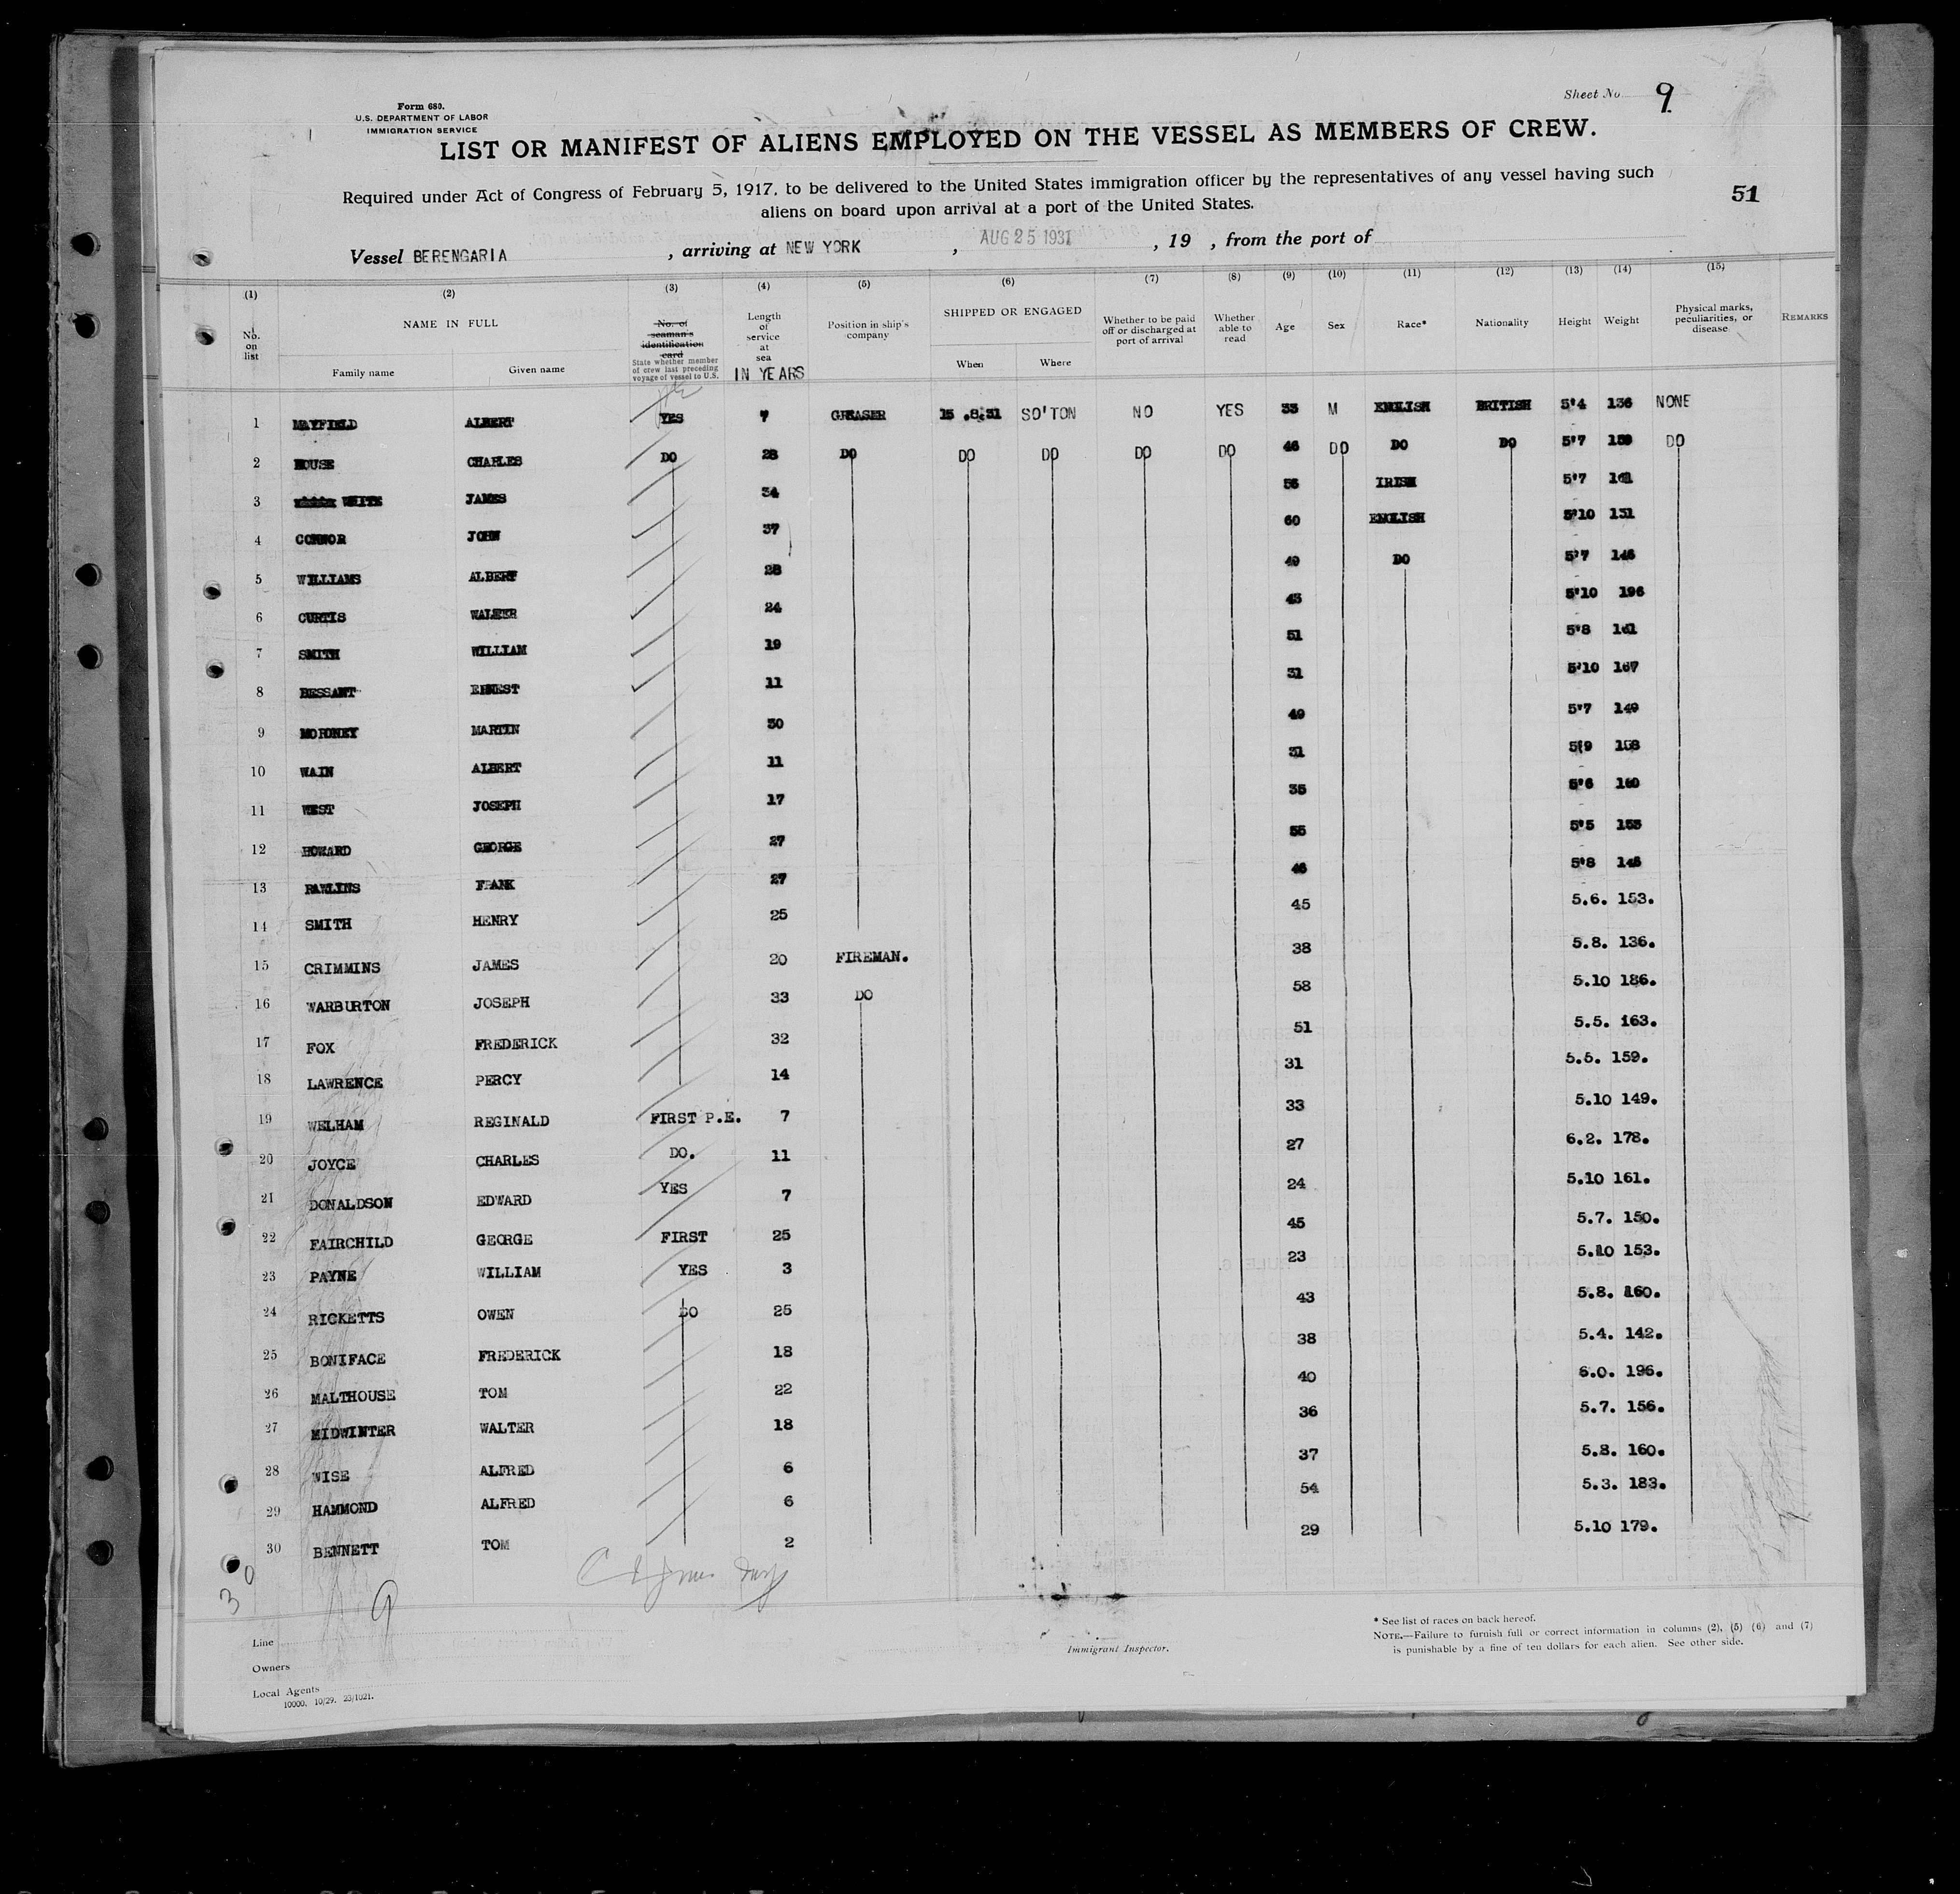 Sheet No 9
Form 680.
U.S. DEPARTMENT OF LABOR
IMMIGRATION SERVICE
LIST OR MANIFEST OF ALIENS EMPLOYED ON THE VESSEL AS MEMBERS OF CREW.
Required under Act of Congress of February 5, 1917, to be delivered to the United States immigration officer by the representatives of any vessel having such
aliens on board upon arrival at a port of the United States.
51
Vessel BERENGARIA , arriving at NEW YORK , AUG 25 1931 , 19 , from the port of
(1) (2) (3) (4) (5) (6) (7) (8) (9) (10) (11) (12) (13) (14) (15)
No. on list NAME IN FULL Family name Given name No. of seaman's identification card State whether member of crew last preceding voyage of vessel to U.S. Length of service at sea IN YEARS Position in ship's company SHIPPED OR ENGAGED When Where Whether to be paid off or discharged at port of arrival Whether able to read Age Sex Race* Nationality Height Weight Physical marks, peculiarities, or disease REMARKS
1 MAYFIELD ALBERT YES 7 GREASER 15.8.31 SO'TON NO YES 33 M ENGLISH BRITISH 5'4 136 NONE
2 HOUSE CHARLES DO 28 DO DO DO DO DO 46 DO DO DO 5'7 DO
3 WHITE JAMES 34 56 IRISH 5'7 161
4 CONNOR JOHN 37 60 ENGLISH 5'10 131
5 WILLIAMS ALBERT 28 49 DO 5'7 146
6 CURTIS WALTER 24 43 5'10 196
7 SMITH WILLIAM 19 51 5'8 161
8 BESSANT ERNEST 11 31 5'10 167
9 MORONEY MARTIN 30 49 5'7 149
10 WAIN ALBERT 11 31 5'9 158
11 WEST JOSEPH 17 35 5'6 160
12 HOWARD GEORGE 27 55 5'5 155
13 RAWLINS FRANK 27 46 5'8 148
14 SMITH HENRY 25 45 5.6. 153.
15 CRIMMINS JAMES 20 FIREMAN. 38 5.8. 136.
16 WARBURTON JOSEPH 33 DO 58 5.10 186.
17 FOX FREDERICK 32 51 5.5. 163.
18 LAWRENCE PERCY 14 31 5.5. 159.
19 WELHAM REGINALD FIRST P.E. 7 33 5.10 149.
20 JOYCE CHARLES DO. 11 27 6.2. 178.
21 DONALDSON EDWARD YES 7 24 5.10 161.
22 FAIRCHILD GEORGE FIRST 25 45 5.7. 150.
23 PAYNE WILLIAM YES 3 23 5.10 153.
24 RICKETTS OWEN DO 25 43 5.8. 160.
25 BONIFACE FREDERICK 18 38 5.4. 142.
26 MALTHOUSE TOM 22 40 6.0. 196.
27 MIDWINTER WALTER 18 36 5.7. 156.
28 WISE ALFRED 6 37 5.8. 160.
29 HAMMOND ALFRED 6 54 5.3. 183.
30 BENNETT TOM 2 29 5.10 179.
30
9
Line
Owners
Local Agents
10000. 10/29. 23/1021.
Immigrant Inspector.
* See list of races on back hereof.
NOTE.—Failure to furnish full or correct information in columns (2), (5) (6) and (7)
is punishable by a fine of ten dollars for each alien. See other side.